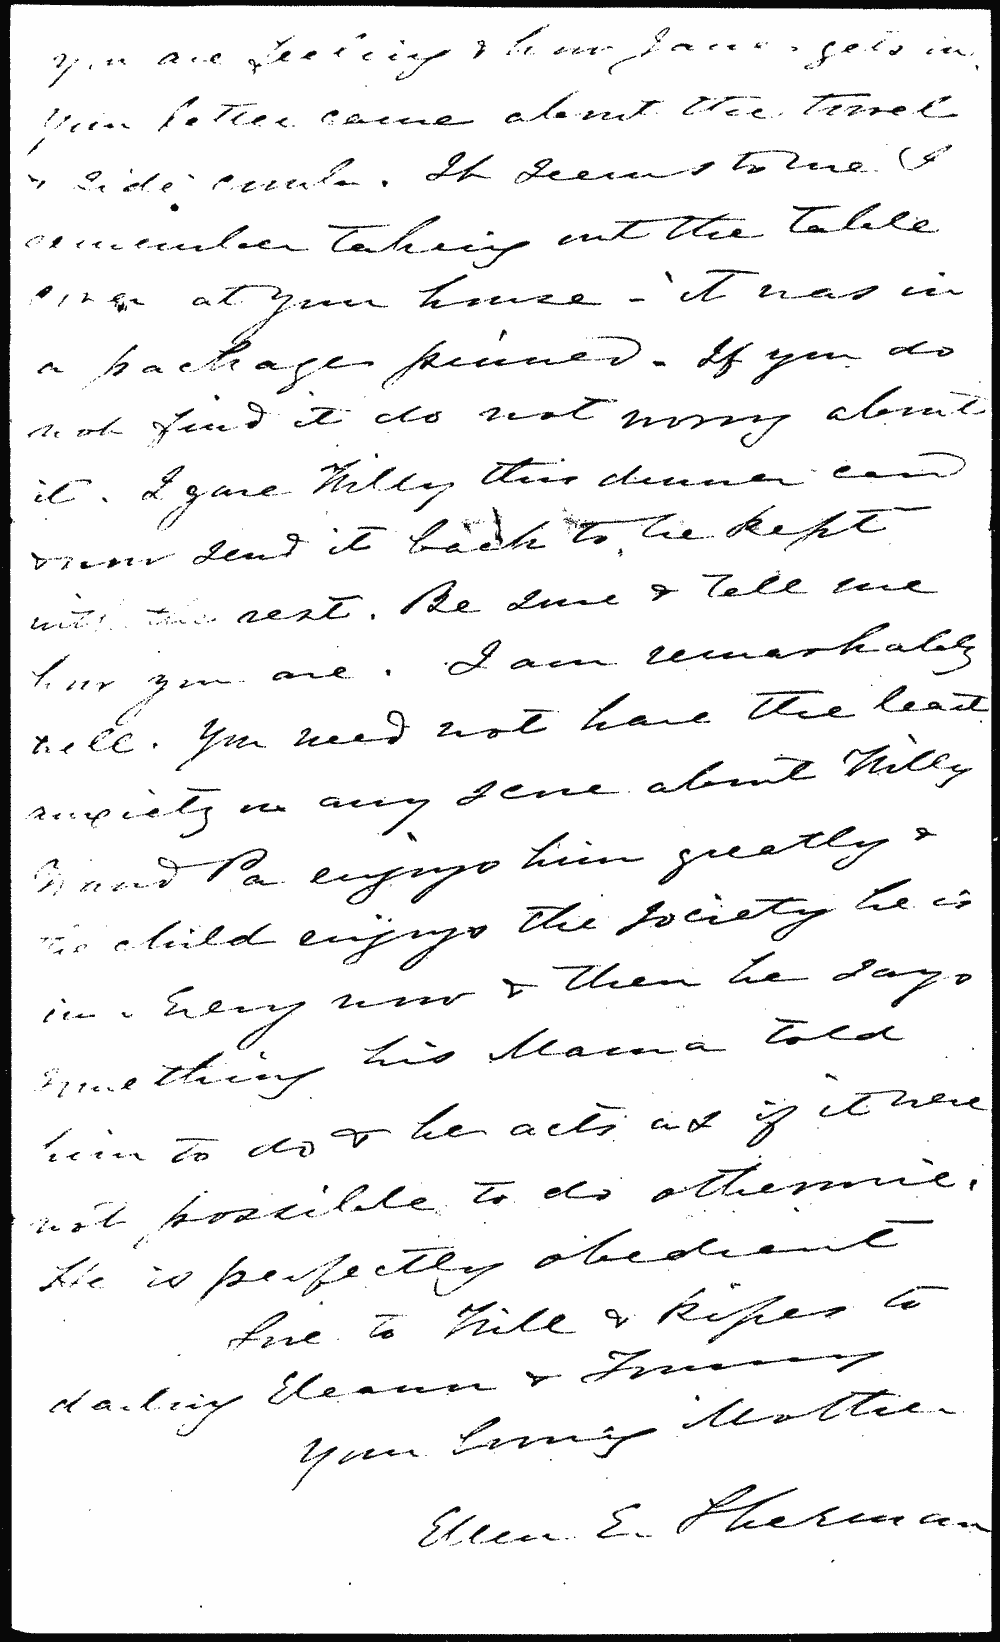 you are feeling & how Jane gets in.
Your letter came about the towel
& side comb. It seems to me I
remember taking out the table
cover at your house - it was in
a package pinned. If you do
not find it do not worry about
it. I gave Willy this dinner card
& now send it back to be kept
with the rest. Be sure & tell me
how you are. I am remarkably
well. You need not have the least
anxiety in any sense about Willy
Grand Pa enjoys him greatly &
the child enjoys the society he is
in. Every now & then he says
something his Mama told
him to do & he acts as if it were
not possible to do otherwise.
He is perfectly obedient
Love to Will & kisses to
darling Eleanor & Tommy
Your loving Mother
Ellen E. Sherman